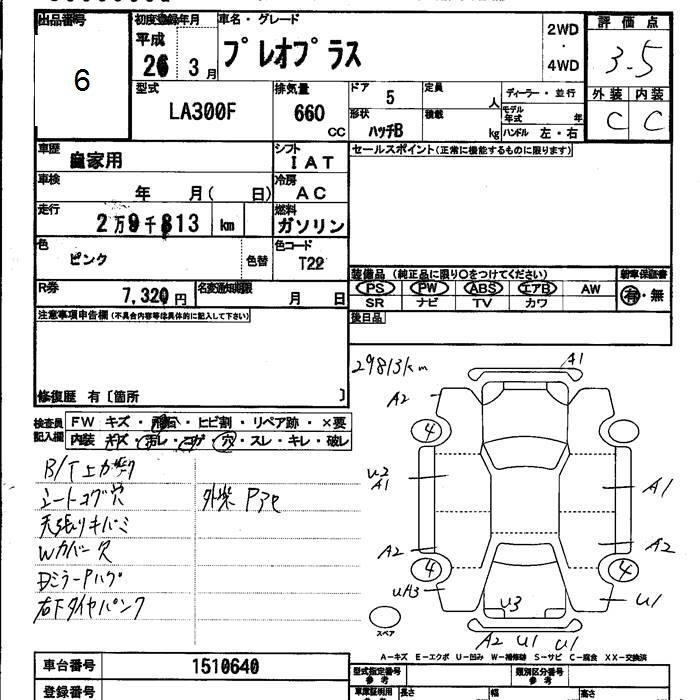 出品番号
6
初度登録年月
平成
26 3月
車名・グレード
プレオプラス
2WD
・
4WD
評価点
3.5
外装 内装
C C
型式
LA300F
排気量
660
CC
ドア 5
定員
人
形状
ハッチB
積載
kg
ディーラー・並行
モデル年式
年
ハンドル 左・右
車歴
自家用
シフト
IAT
セールスポイント(正常に機能するものに限ります)
車検
年 月( 日)
冷房
AC
走行
2万9千813 km
燃料
ガソリン
色
ピンク
色替
色コード
T22
装備品 (純正品に限り○をつけてください)
新車保証書
PS PW ABS エアB AW
有・無
SR ナビ TV カワ
R券
7,320円
名変通知期限
月 日
後日品
注意事項申告欄(不具合内容等は具体的に記入して下さい)
修復歴 有〔箇所 〕
29813km
A1
A2
4
U2
A1
A1
A2
A2
4
4
U3
U1
A2 U1 U1
スペア
検査員記入欄
FW キズ・飛石・ヒビ割・リペア跡・×要
内装 キズ・汚レ・コゲ・穴・スレ・キレ・破レ
シートコゲ穴
天張りキバミ
Wカバー欠
右下タイヤパンク
A-キズ E-エクボ U-凹み W-補修跡 S-サビ C-腐食 XX-交換済
車台番号
1510640
登録番号
型式指定番号
参考
類別区分番号
参考
長さ
幅
高さ